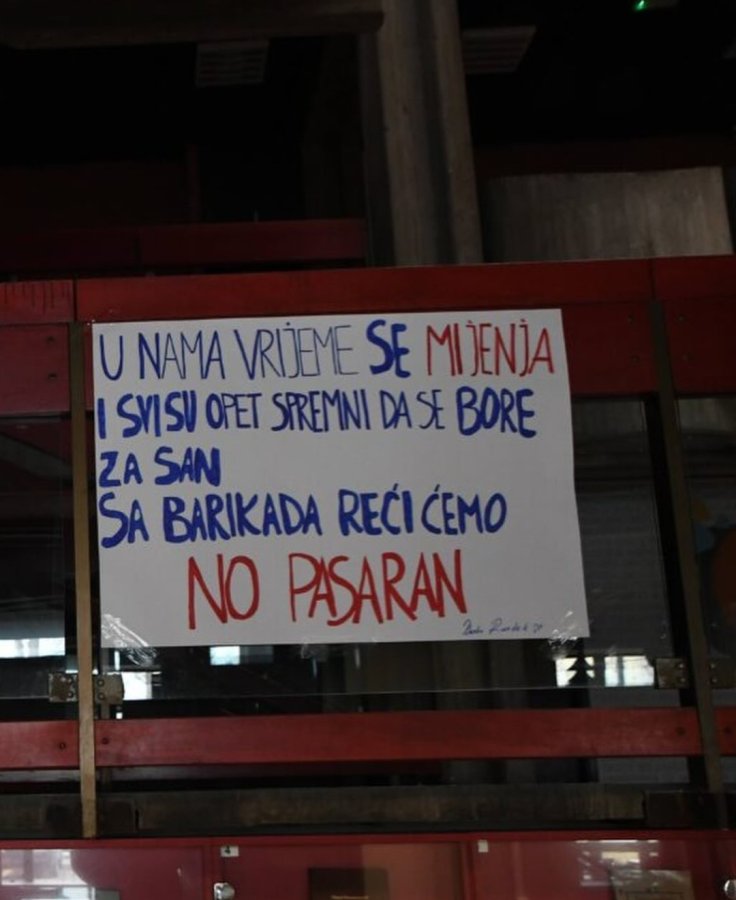 U NAMA VRIJEME SE MIJENJA
I SVI SU OPET SPREMNI DA SE BORE
ZA SAN
SA BARIKADA REĆI ĆEMO
NO PASARAN
4